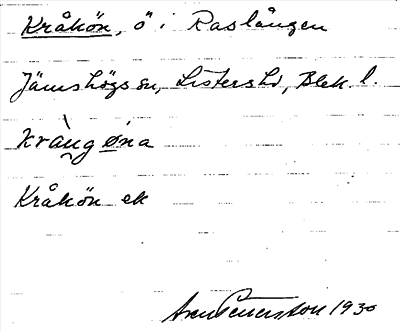 Kråkön, ö i Raslången
Jämshögs sn, Listers hd, Blek. l.
kràngøna
Kråkön ek
1930